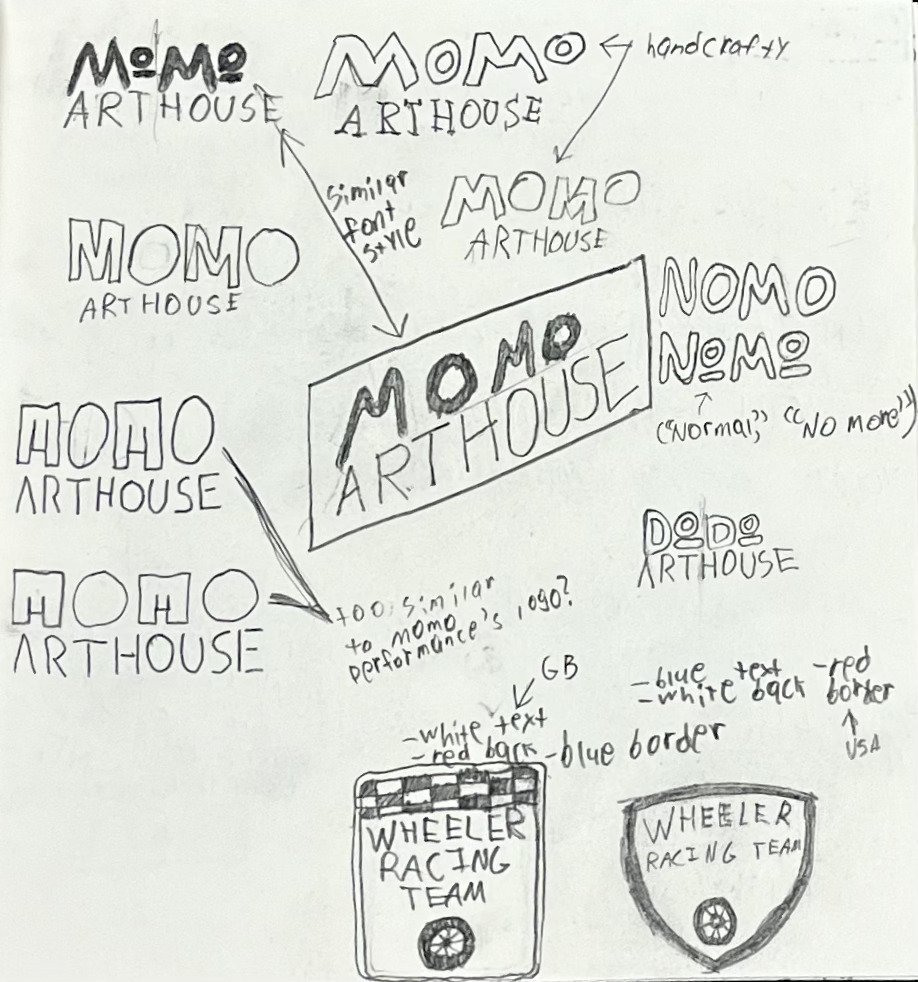 MoMo
ARTHOUSE
MOMO
ARTHOUSE
handcrafty
similar
font
style
MOMO
ARTHOUSE
MOMO
ARTHOUSE
MOMO
ARTHOUSE
NOMO
NoMo
("Normal," "No more")
MOMO
ARTHOUSE
DoDo
ARTHOUSE
MOMO
ARTHOUSE
too similar
to momo
performance's logo?
GB
-white text
-red back -blue border
-blue text -red
-white back border
USA
WHEELER
RACING
TEAM
WHEELER
RACING TEAM